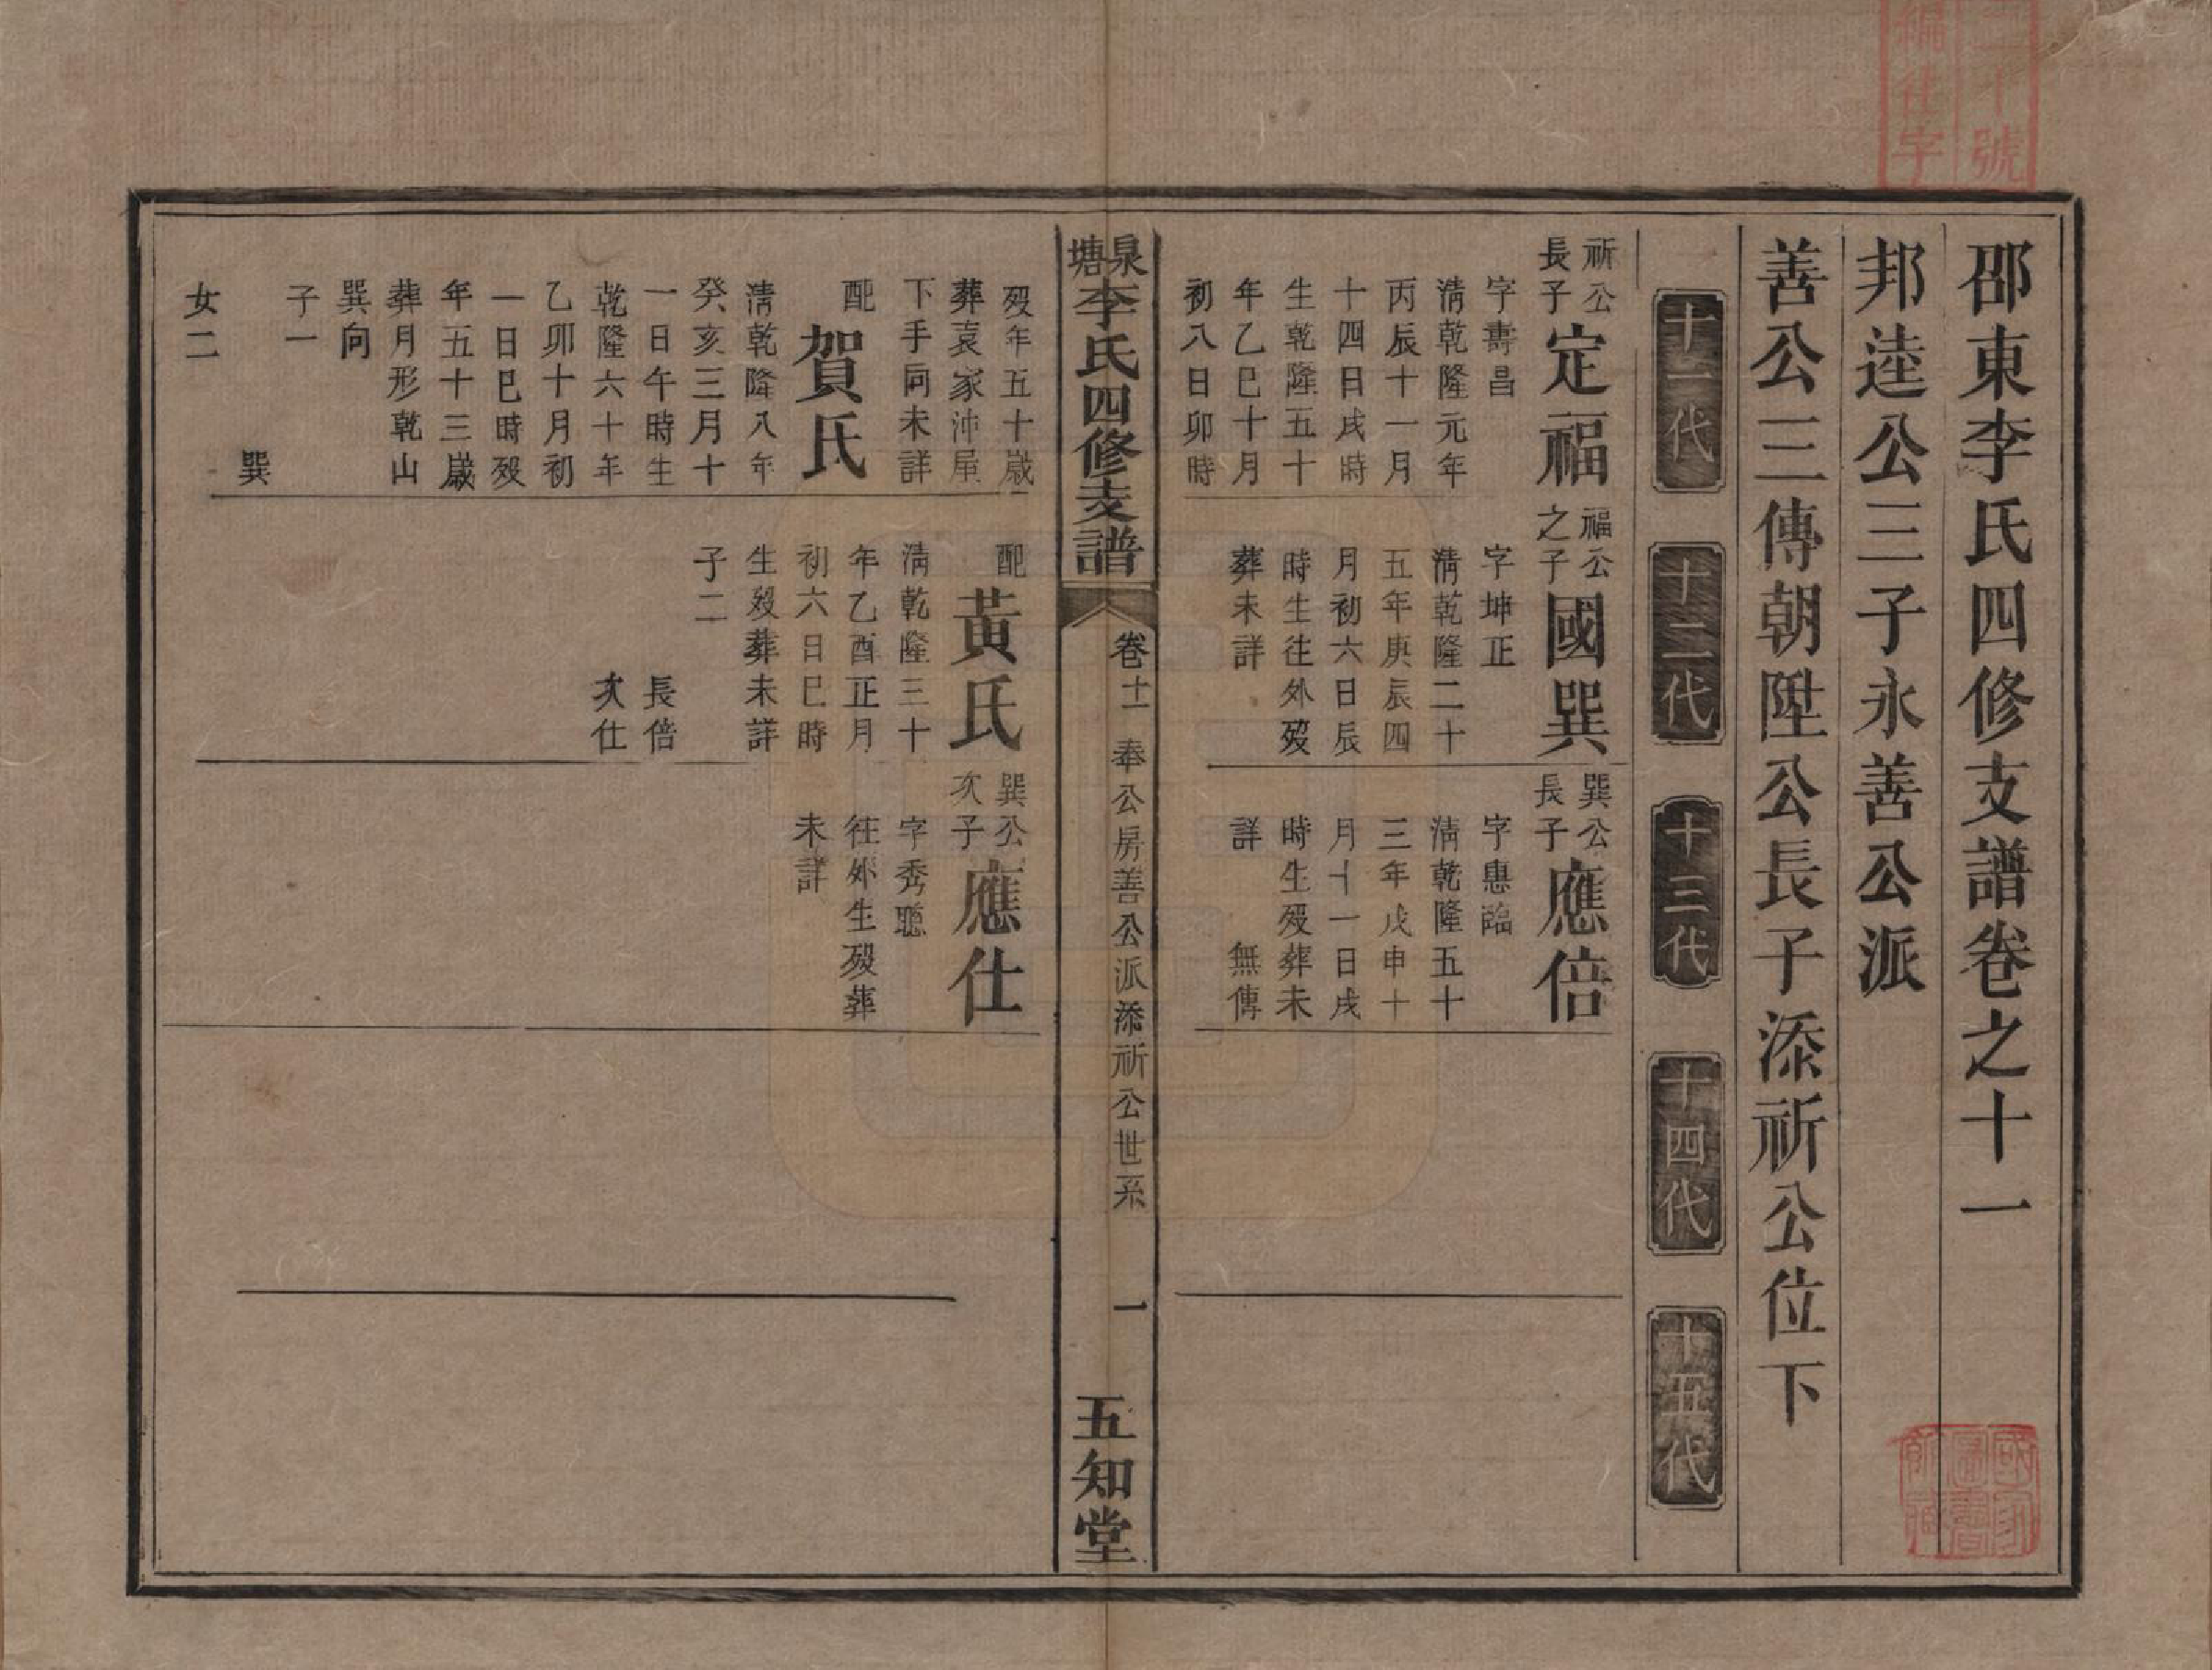 二十號
編仕字
邵東李氏四修支譜卷之十一
邦逵公三子永善公派
善公三傳朝陞公長子添祈公位下
十一代
十二代
十三代
十四代
十五代
祈公
長子
定福
字壽昌
清乾隆元年
丙辰十一月
十四日戌時
生乾隆五十
年乙巳十月
初八日卯時
福公
之子
國巽
字坤正
清乾隆二十
五年庚辰四
月初六日辰
時生往外歿
葬未詳
巽公
長子
應倍
字惠臨
清乾隆五十
三年戊申十
月十一日戌
時生歿葬未
詳 無傳
泉塘李氏四修支譜
卷十一 奉公房善公派添祈公世系
一
五知堂
歿年五十歲
葬袁家沖屋
下手向未詳
配
賀氏
清乾隆八年
癸亥三月十
一日午時生
乾隆六十年
乙卯十月初
一日巳時歿
年五十三歲
葬月形乾山
巽向
子一
巽
女二
配
黃氏
清乾隆三十
年乙酉正月
初六日巳時
生歿葬未詳
子二
長倍
次仕
巽公
次子
應仕
字秀聰
往外生歿葬
未詳
國家
圖書
館藏